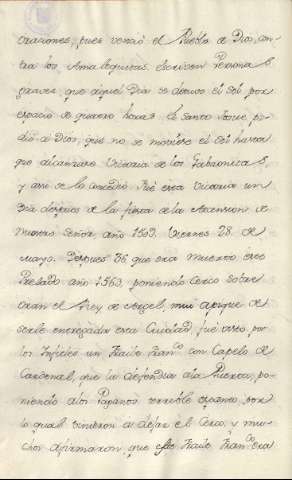 oraciones, pues venció el Pueblo de Dios, con-
tra los Amalequitas. escriven Personas
graves, que aquel Dia se detuvo el Sol por
espacio de quatro horas. El Santo Josue, pi-
dió a Dios, que no se moviese el Sol hasta
que alcanzase Victoria de los Gabaonitas,
y assi se la concedió. Fué esta Victoria un
Dia despues de la fiesta de la Ascension de
Nuestro Señor año 1509. Viernes 28. de
Mayo. Despues que era Muerto este
Prelado año 1563. poniendo Cerco sobre
oran el Rey de Argel, mui apique de
serle entregada esta Ciudad, fué visto, por
los Infieles un Fraile Franco con Capelo de
Cardenal, que la defendia ala Puerta, po-
niendo alos Paganos terrible espanto, por
lo qual vinieron a dejar el Cerco, y mu-
chos afirmaron, que este Fraile Franco era